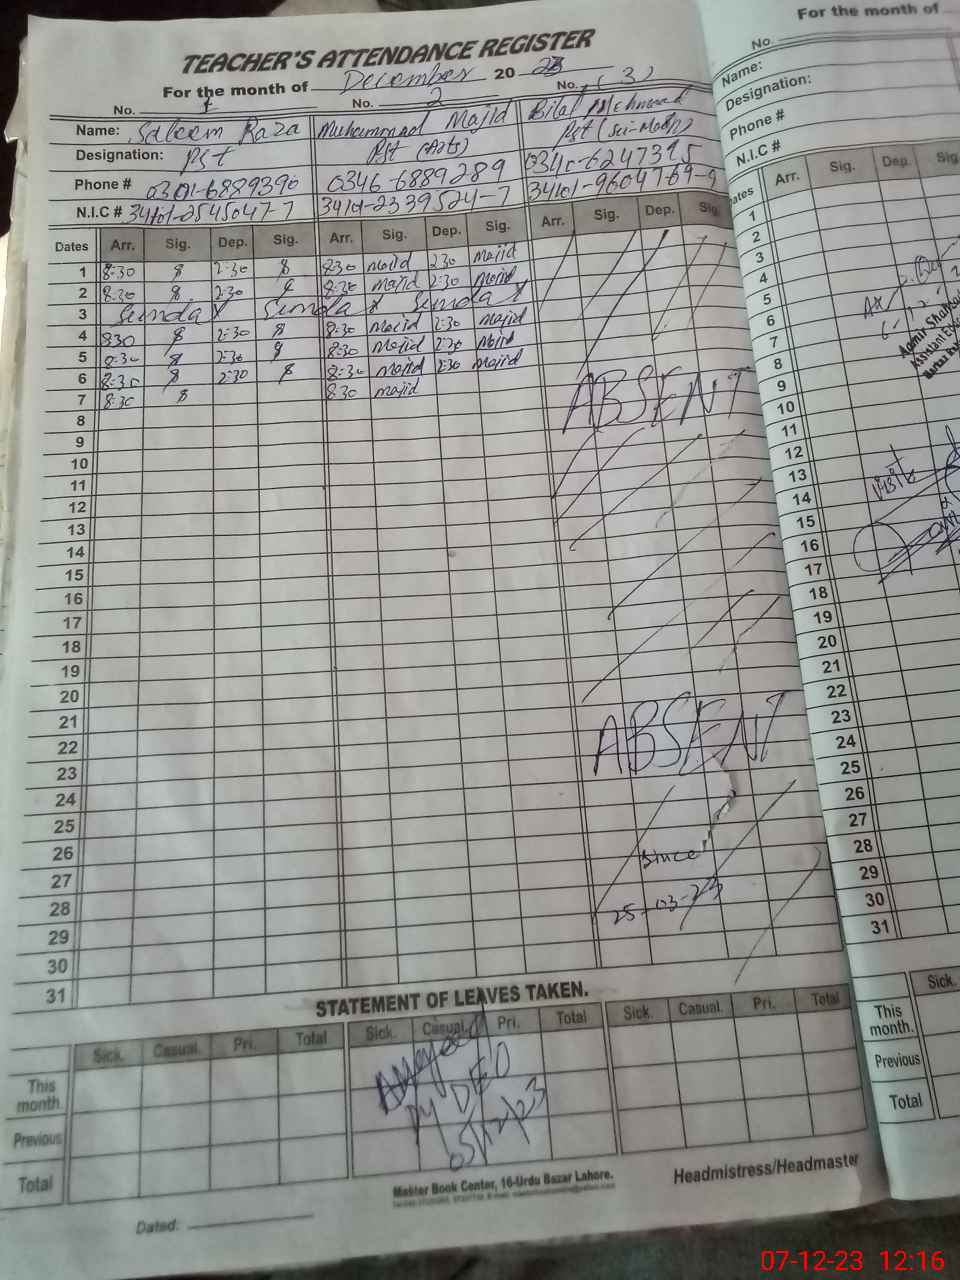 TEACHER'S ATTENDANCE REGISTER
For the month of December 20 23
No. 1 No. 2 No. (3)
Name: Saleem Raza Muhammad Majid Bilal Mehmood
Designation: Pst Pst (Arts) Pst (Sci-Math)
Phone # 0301-6889390 0346-6889289 0340-6247395
N.I.C # 34101-2545047-7 34101-2339524-7 34101-9604769-9
Dates Arr. Sig. Dep. Sig. Arr. Sig. Dep. Sig. Arr. Sig. Dep. Sig.
1 8:30 2:30 8:30 Majid 2:30 Majid
2 8:30 2:30 8:30 Majid 2:30 Majid
3 Sunday Sunday Sunday
4 8:30 2:30 8:30 Majid 2:30 Majid
5 8:30 2:30 8:30 Majid 2:30 Majid
6 8:30 2:30 8:30 Majid 2:30 Majid
7 8:30 8:30 Majid
ABSENT
8
9
10
11
12
13
14
15
16
17
18
19
20
21
22
ABSENT
23
24
25
26
since
27
28
25-03-23
29
30
31
STATEMENT OF LEAVES TAKEN.
Sick. Casual. Pri. Total Sick. Casual. Pri. Total Sick. Casual. Pri. Total
This month.
Previous
Total
DEO
Master Book Center, 16-Urdu Bazar Lahore.
Headmistress/Headmaster
Dated:
For the month of
No.
Name:
Designation:
Phone #
N.I.C #
Dates Arr. Sig. Dep. Sig.
1
2
3
4
5
6
7
8
9
10
11
12
13
Visit
14
15
16
17
18
19
20
21
22
23
24
25
26
27
28
29
30
31
Sick.
This month.
Previous
Total
07-12-23 12:16